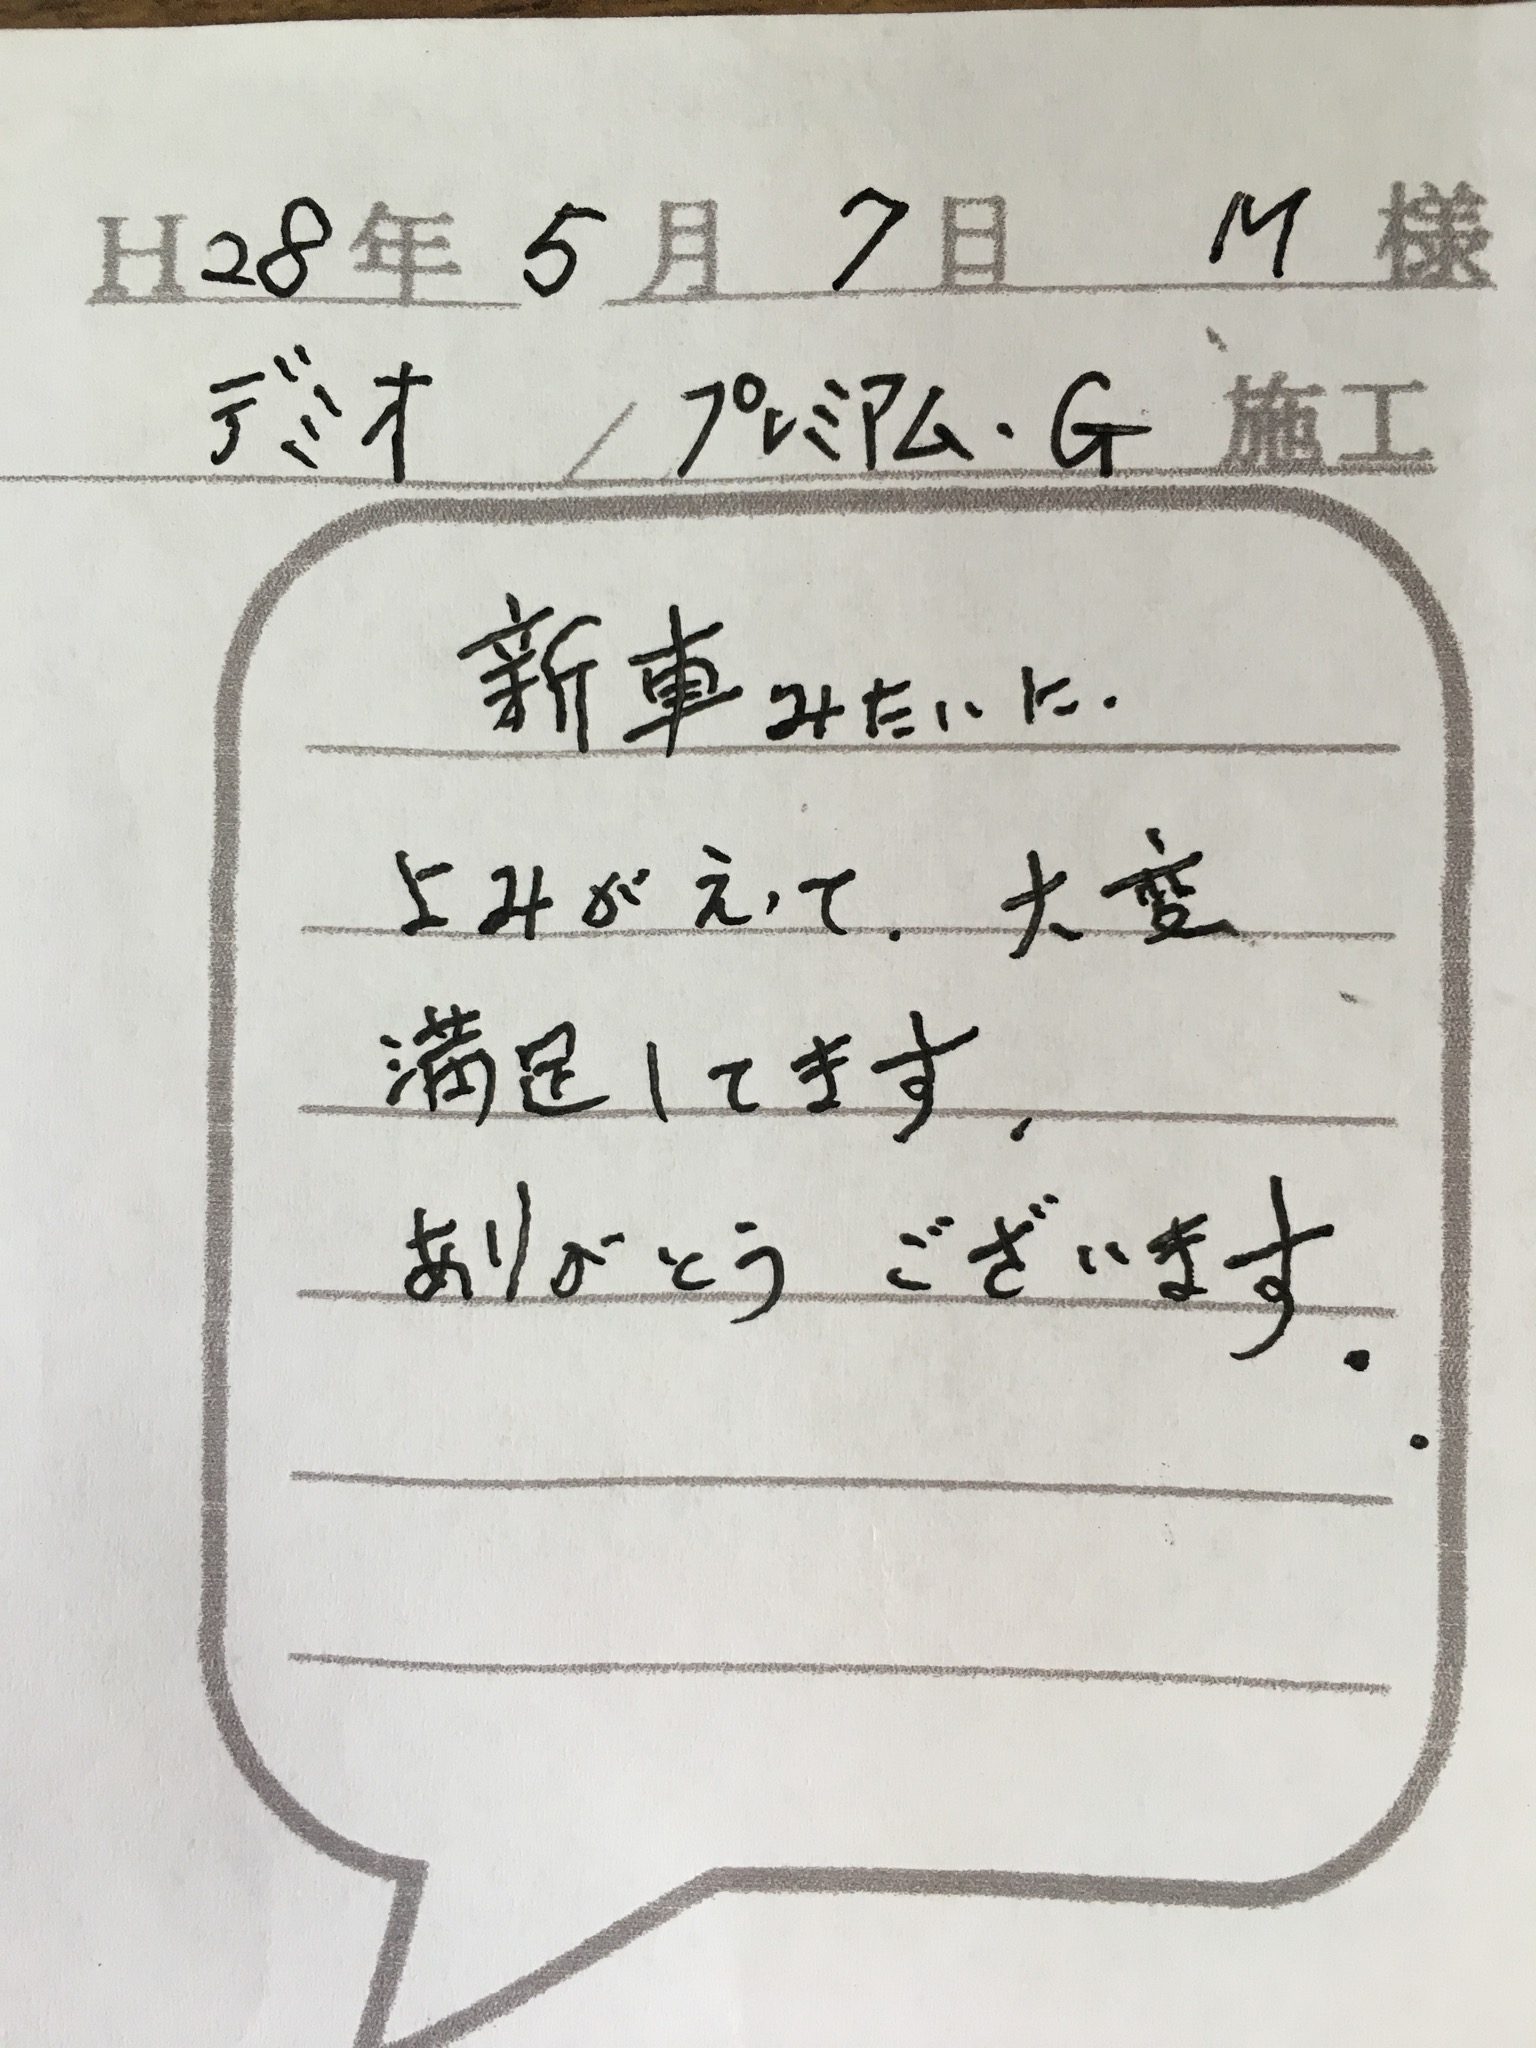 H28年 5月 7日 M 様
デミオ / プレミアム・G 施工
新車みたいに.
よみがえって. 大変
満足してます.
ありがとう ございます.